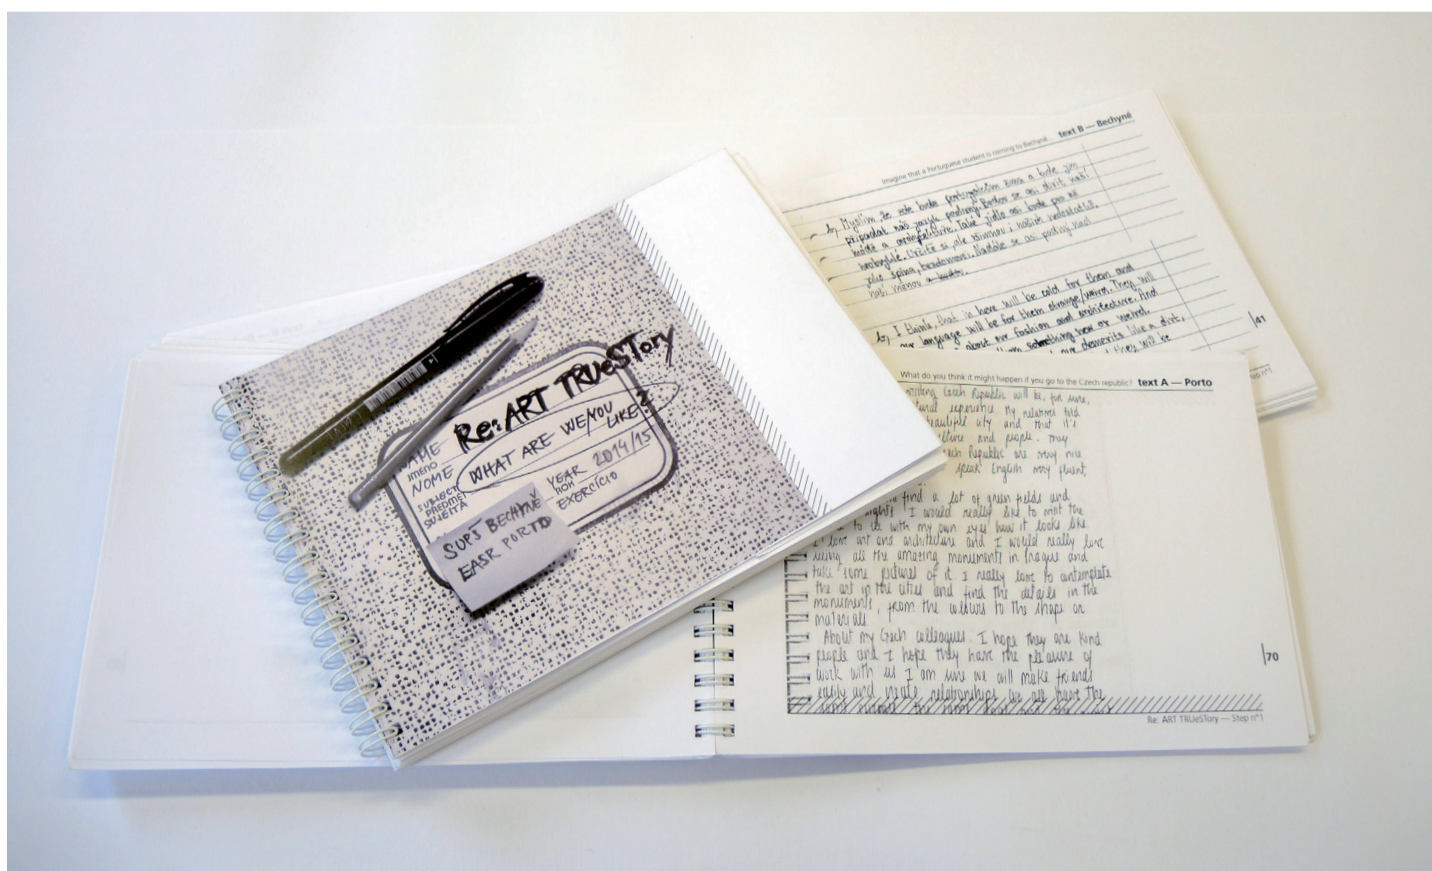 Re: ART TRUeSTory
WHAT ARE WE/YOU LIKE?
NAME
JMENO
NOME
SUBJECT
PŘEDMĚT
SUJEITA
YEAR 2014/15
ROK
EXERCÍCIO
SUPŠ BECHYNĚ
EASR PORTO
Imagine that a Portuguese student is coming to Bechyně... text B — Bechyně
b, Myslím že zde bude portugalcům zima a bude jim
připadat náš jazyk podivný. Budou se asi divit naší
módě a architektuře. Také jídlo asi bude pro ně
neobvyklé. Určitě si ale všimnou i našich nedostatků,
jako špína, bezdomovci. Nadále se asi podiví nad
naší měnou
b, I think, that in here will be cold for them and
our language will be for them strange/weird. They will
about our fashion and architecture. And
them something new or weird.
our demerits like a dirt,
they will be
41
Step nº1
What do you think it might happen if you go to the Czech republic? text A — Porto
visiting Czech Republic will be, for sure,
cultural experience. My relatives told
beautiful city and that it's
culture and people. They
Czech Republic are very nice
speak English very fluent
find a lot of green fields and
I would really like to visit the
to see with my own eyes how it looks like.
I love art and architecture and I would really love
seeing all the amazing monuments in Prague and
take some pictures of it. I really love to contemplate
the art in the cities and find the details in the
monuments, from the colours to the shape or
materials.
About my Czech colleagues. I hope they are kind
people and I hope they have the pleasure of
work with us. I am sure we will make friends
easily and create relationships. We all have the
70
Re: ART TRUeSTory — Step nº1